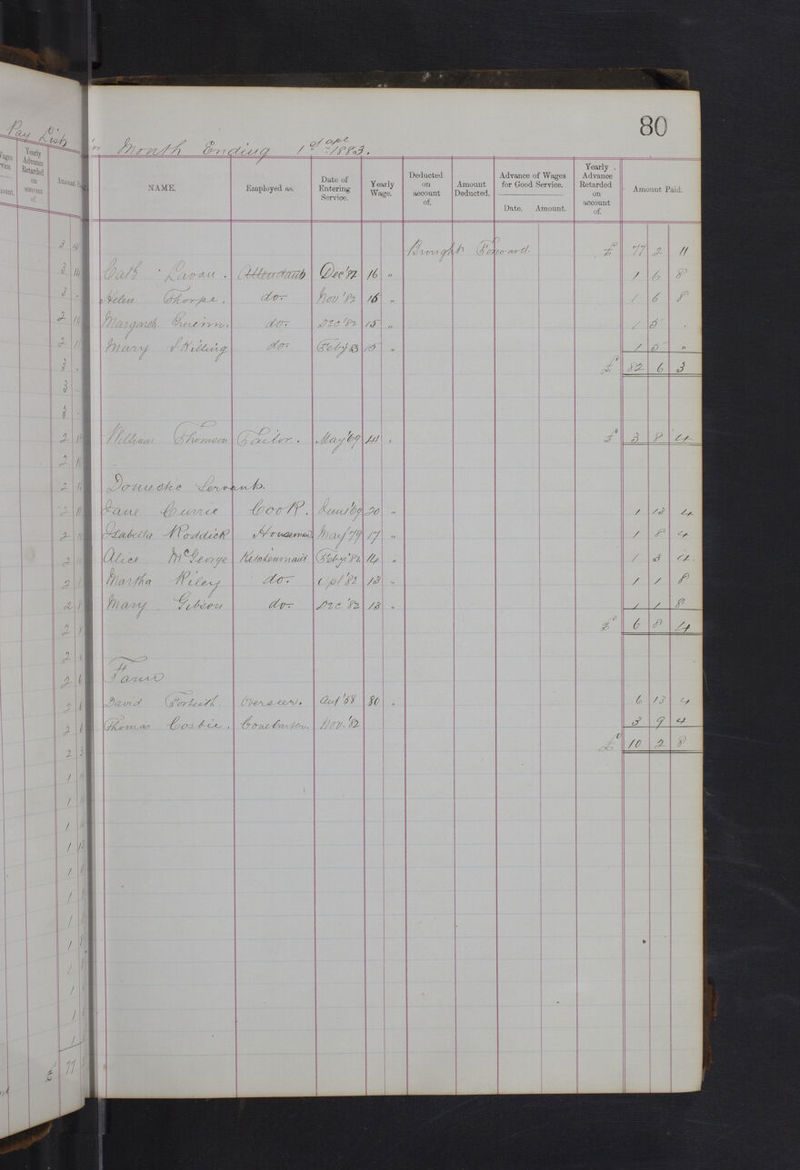 80
Pay List
for Month Ending 1st Apl 1883.
Yearly Advance Retarded on account of
NAME. Employed as. Date of Entering Service. Yearly Wage. Deducted on account of. Amount Deducted. Advance of Wages for Good Service. Date. Amount. Yearly Advance Retarded on account of. Amount Paid.
Brought Forward £ 77 2 11
Cath Lavan. Attendant Dec '82 16 " 1 6 8
Helen Thorpe. do. Nov '82 16 " 1 6 8
Margaret do. Dec '82 15 " 1 5 "
Mary Skilling do. Feby 83 15 " 1 5 "
£ 82 6 3
William Thomson Tailor. May '69 41 " £ 3 8 4
Domestic Servants.
Jane Currie Cook. June '69 20 " 1 13 4
Isabella Roddick Housemaid May '79 17 " 1 8 4
Alice McGeorge Kitchenmaid Feby '82 14 " 1 3 4
Martha Riley do. Apl '82 13 " 1 1 8
Mary Gibson do. Dec '82 13 " 1 1 8
£ 6 8 4
Farm
David Overseer. Aut '58 80 " 6 13 4
Thomas Costie. Nov. '82 3 9 4
£ 10 2 8
£ 77